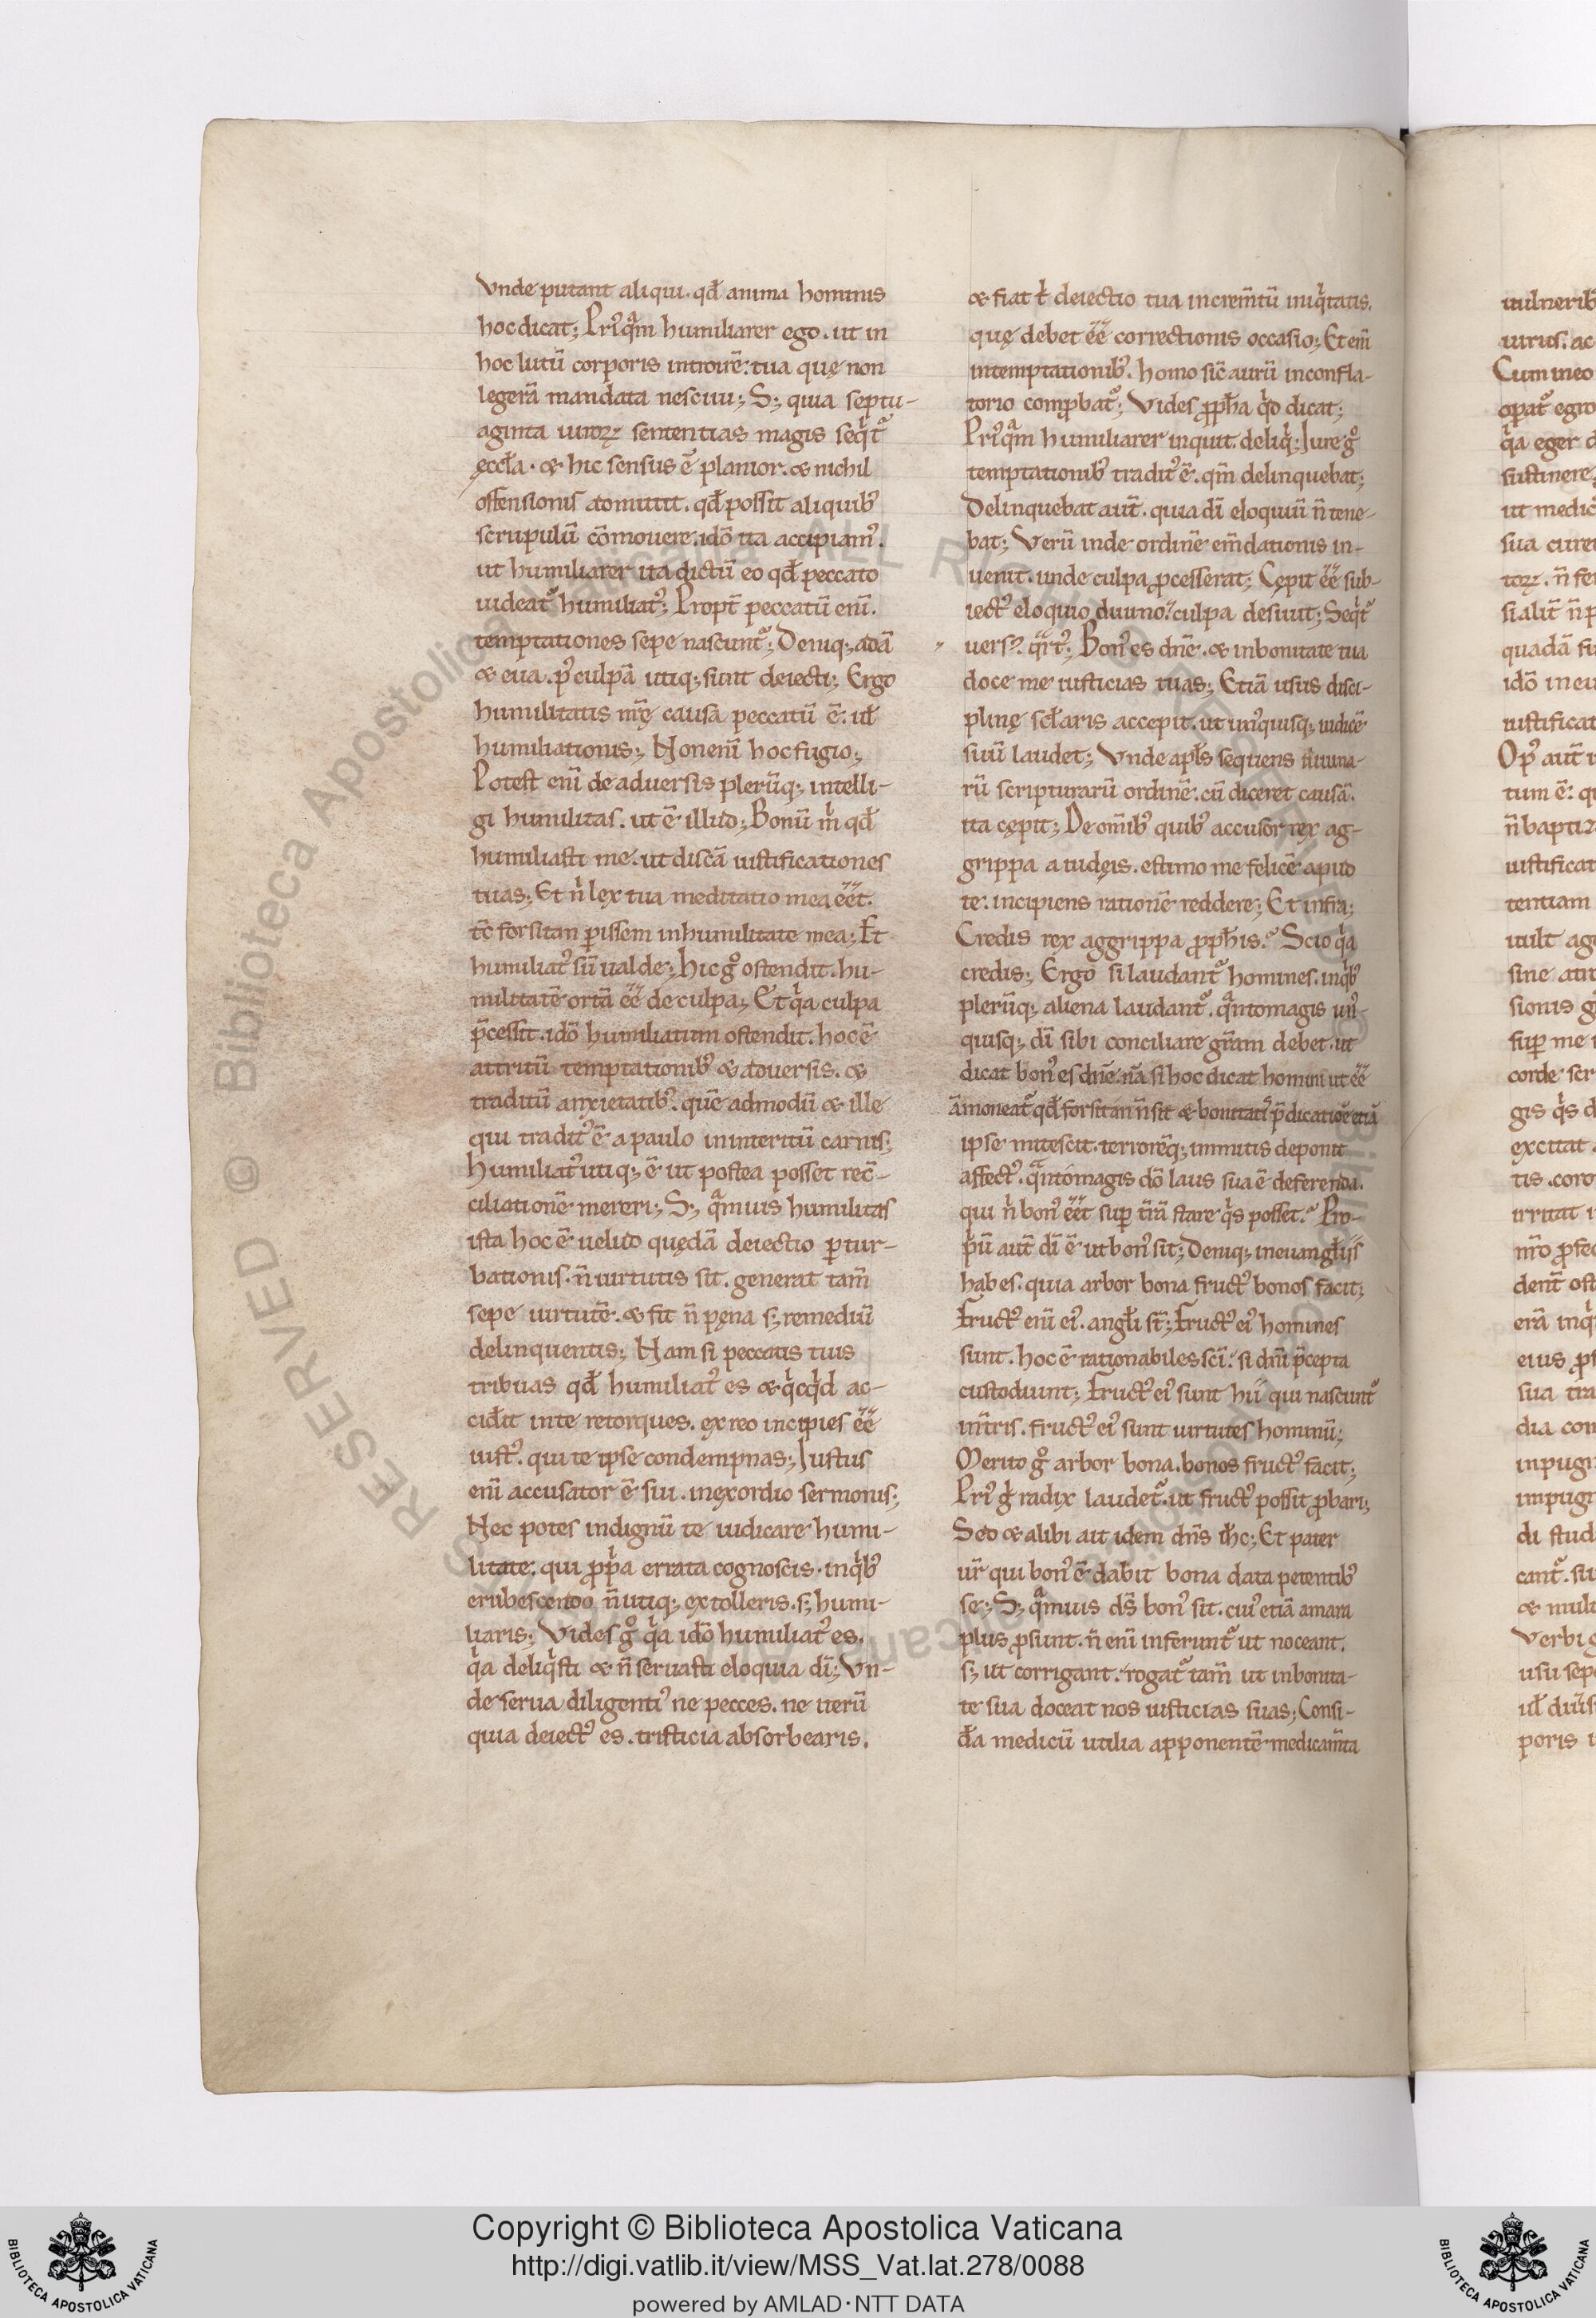 Vnde putant aliqui. qđ anima hominis
hoc dicat; Priꝰqᵃm humiliarer ego. ut in
hoc lutū corporis introirē: tua quę non
legerā mandata nesciui; S; quia septu-
aginta uiroꝝ sententias magis seqͥt᷑
ęccła. & hic sensus ē planior. & nichil
offensionis admittit. qđ possit aliquibꝰ
scrupulū cōmouere. idō ita accipiamꝰ.
ut humiliarer ita dictū eo qđ peccato
uideat᷑ humiliatꝰ; Propt̄ peccatū enī.
temptationes sepe nascunt᷑; Deniq; adā
& eua. pꝰ culpā utiq; sunt deiecti; Ergo
humilitatis nr̄ę causa peccatū ē. uł
humiliationis; Non enī hoc fugio;
Potest enī de aduersis plerūq; intelli-
gi humilitas. ut ē illud; Bonū m̊ qđ
humiliasti me. ut discā iustificationes
tuas; Et nͥ lex tua meditatio mea eēt.
tc̄ forsitan ꝑissem in humilitate mea; Et
humiliatꝰ sū ualde; Hic gͦ ostendit. hu-
militatē ortā eē de culpa; Et qͥa culpa
p̄cessit. idō humiliatum ostendit. hoc ē
attritū temptationibꝰ & aduersis. &
traditū anxietatibꝰ. quē admodū & ille
qui traditꝰ ē a paulo in interitū carnis;
Humiliatꝰ utiq; ē ut postea posset rec̄-
ciliationē mereri; S; qᵃmuis humilitas
ista hoc ē uelud quędā deiectio ꝑtur-
bationis. n̄ uirtutis sit. generat tam̄
sepe uirtutē. & fit n̄ pęna s; remediū
delinquentis; Nam si peccatis tuis
tribuas qđ humiliatꝰ es & qͥcqͥd ac-
cidit in te retorques. ex reo incipies eē
iustꝰ. qui te ipse condempnas; Iustus
enī accusator ē sui. in exordio sermonis;
Nec potes indignū te iudicare humi-
litate. qui ꝓpͥa errata cognoscis. in qͥbꝰ
erubescendo n̄ utiq; extolleris. s; humi-
liaris; Vides gͦ qͥa idō humiliatꝰ es.
qͥa deliqͥsti & n̄ seruasti eloquia dī; Vn-
de serua diligentiꝰ ne pecces. ne iterū
quia deiectꝰ es. tristicia absorbearis.
& fiat t deiectio tua increm̄tū iniqͥtatis.
quę debet eē correctionis occasio; Et enī
in temptationibꝰ. homo sic̄ aurū in confla-
torio comꝓbat᷑; Vides ꝓpħa qͥd dicat;
Priꝰqᵃm humiliarer inquit. deliqͥ; Iure gͦ
temptationibꝰ traditꝰ ē. qm̄ delinquebat;
Delinquebat aut̄. quia dī eloquiū n̄ tene-
bat; Verū inde ordinē em̄dationis in-
uenit. unde culpa ꝓcesserat; Cępit eē sub-
iectꝰ eloquio diuino. culpa desiuit; Seqͥt᷑
uersꝰ. qͣrtꝰ; Bonꝰ es dnē. & in bonitate tua
doce me iusticias tuas; Etiā usus disci-
plinę scłaris accepit. ut unꝰquisq; iudicē
suū laudet; Vnde apłs sequens diuina-
rū scripturarū ordinē. cū diceret causā.
ita cępit; De om̄ibꝰ quibꝰ accusor rex ag-
grippa a iudęis. estimo me felicē apud
te. incipiens rationē reddere; Et infra;
Credis rex aggrippa ꝓpħis. Scio qͥa
credis; Ergo si laudant᷑ homines. in qͥbꝰ
plerūq; aliena laudant᷑. qᵃntomagis unꝰ-
quisq; dī sibi conciliare gr̄am debet. ut
dicat bonꝰ es dnē. nā si hoc dicat homini ut eē
āmoneat᷑ qđ forsitan n̄ sit & bonitatꝰ p̄dicatiōe etiā
ipse mitescit. terrorēq; immitis deponit
affectꝰ. qᵃntomagis dō laus sua ē deferenda.
qui nͥ bonꝰ eēt suꝑ t̄rā stare qͥs posset. Pro-
pͥū aut̄ dī ē ut bonꝰ sit; Deniq; in euangłiis
habes. quia arbor bona fructꝰ bonos facit;
Fructꝰ enī eiꝰ. angłi st̄; Fructꝰ eiꝰ homines
sunt. hoc ē rationabiles scī. si dnī p̄cepta
custodiunt; Fructꝰ eiꝰ sunt hii qui nascunt᷑
in t̄ris. fructꝰ eiꝰ sunt uirtutes hominū;
Merito gͦ arbor bona. bonos fructꝰ facit;
Priꝰ gͦ radix laudet᷑. ut fructꝰ possit ꝓbari;
Sed & alibi ait idem dn̄s iħc; Et pater
ur̄ qui bonꝰ ē dabit bona data petentibꝰ
se; S; qᵃmuis ds̄ bonꝰ sit. cuiꝰ etiā amara
plus ꝓsunt. n̄ enī inferunt᷑ ut noceant.
s; ut corrigant. rogat᷑ tam̄ ut in bonita-
te sua doceat nos iusticias suas; Consi-
đa medicū utilia apponentē medicam̄ta
Copyright © Biblioteca Apostolica Vaticana
http://digi.vatlib.it/view/MSS_Vat.lat.278/0088
powered by AMLAD·NTT DATA